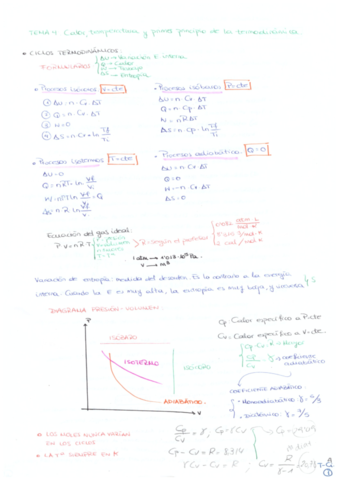 TEMA 4 Calor, temperatura y primer principio de la termodinámica.
• CICLOS TERMODINÁMICOS:
FORMULARIO
Q → Calor
W → Trabajo
ΔS → Entropía
• Procesos isócoros V=cte
① ΔU = n·Cv·ΔT
② Q = n·Cv·ΔT
③ W=0
④ ΔS = n·Cv·ln Tf/Ti
• Procesos isóbaros P=cte
ΔU = n·Cv·ΔT
Q = n·Cp·ΔT
W = nRΔT
ΔS = n·Cp·ln Tf/Ti
• Procesos isotermos T=cte
ΔU=0
Q = nRTi·ln Vf/Vi
W = nRTi ln Vf/Vi = Q
ΔS = nR ln Vf/Vi
• Procesos adiabáticos Q=0
ΔU = n·Cv·ΔT
Q=0
W = -n·Cv·ΔT
ΔS = 0
Ecuación del gas ideal:
P·V=n·R·T
R según el problema
1 atm → 1'013·10⁵ Pa
V → m³
Variación de entropía: medida del desorden. Es lo contrario a la energía
interna. Cuando la E es muy alta, la entropía es muy baja, y viceversa
DIAGRAMA PRESIÓN-VOLUMEN
P
ISOBARO
ISOTERMO
ISOCORO
ADIABÁTICO
V
Cp Calor específico a P=cte
Cv: Calor específico a V=cte
Cp-Cv = R → Mayer
Cp/Cv = γ → coeficiente adiabático
COEFICIENTE ADIABÁTICO
• Monoatómico γ = 5/3
• Diatómico: γ = 7/5
• LOS MOLES NUNCA VARÍAN
EN LOS CICLOS
• LA Tª SIEMPRE EN K
Cp/Cv = γ, Cp = γCv
Cp - Cv = R = 8'314
γCv - Cv = R ; Cv = R/γ-1